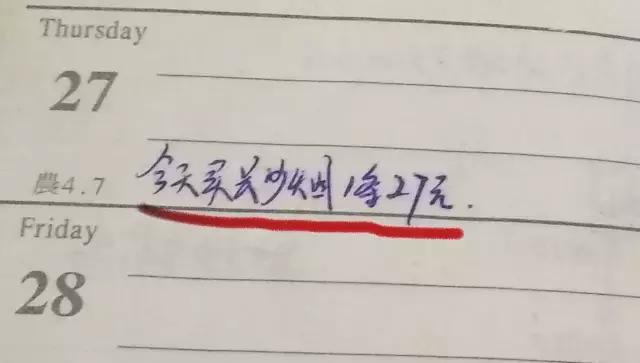 Thursday
27
農4.7
今天买长沙烟1条27元.
Friday
28